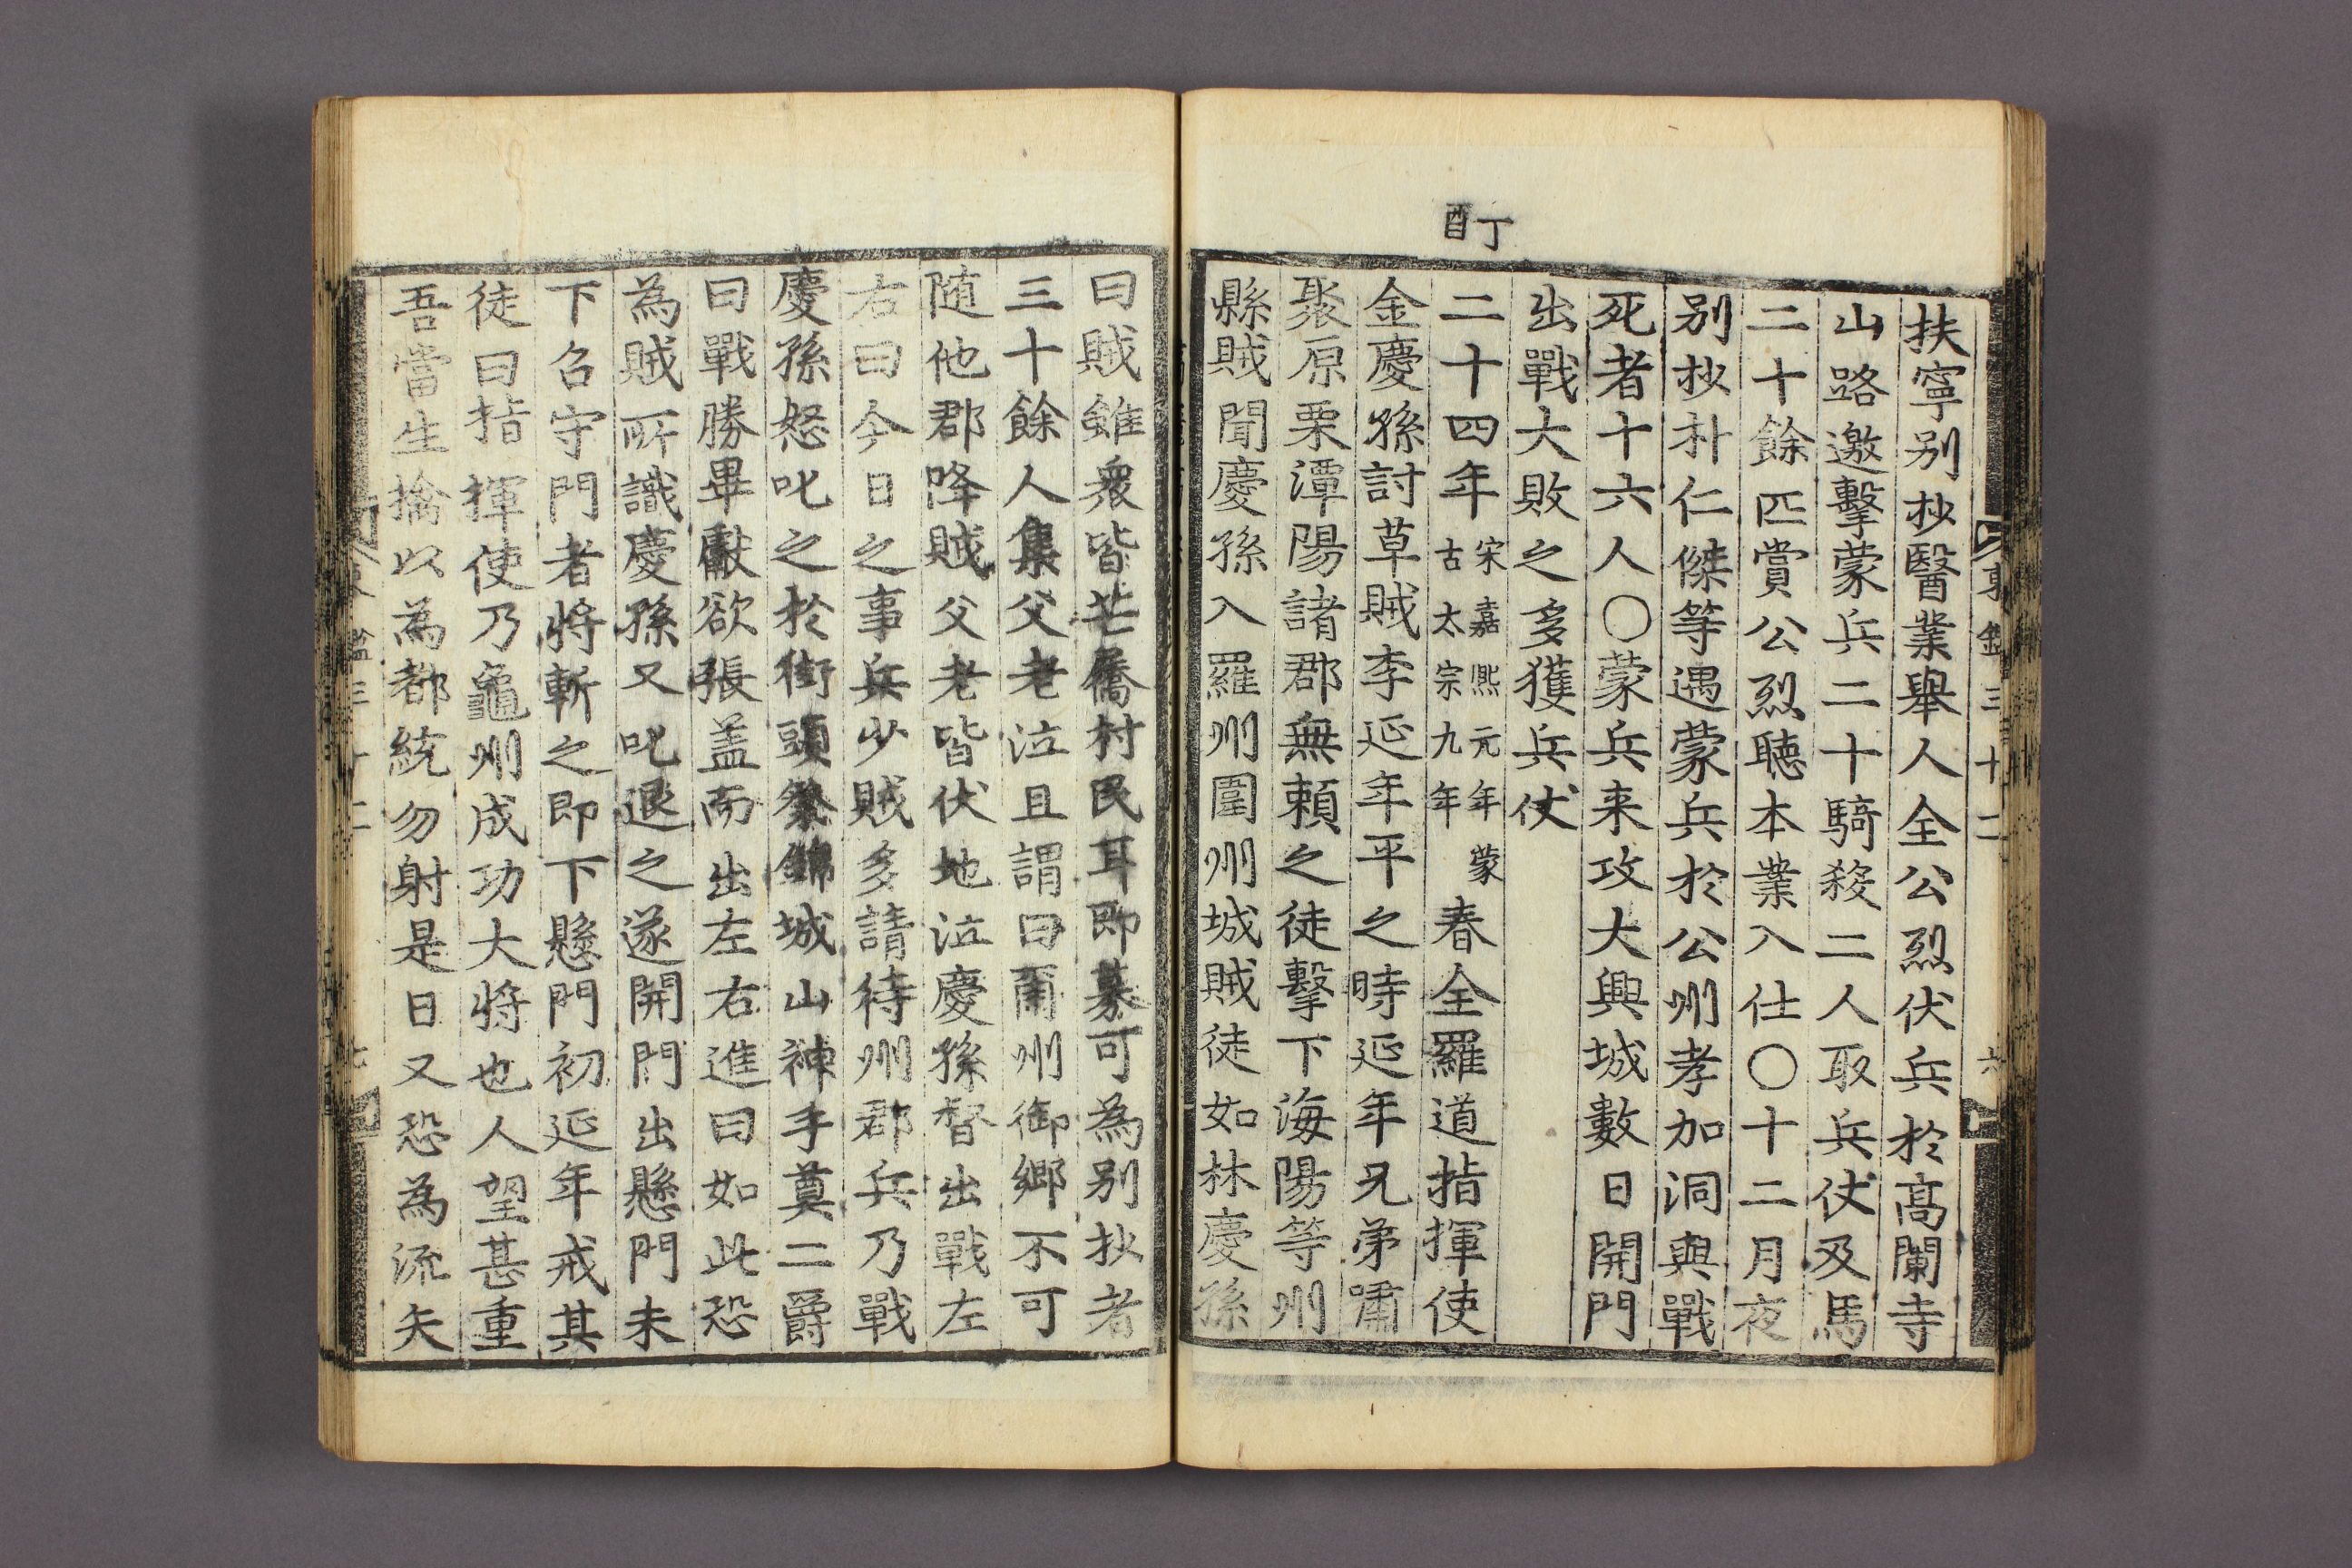 東鑑三十二
六
扶寧别抄醫業舉人全公烈伏兵於高闌寺
山路邀擊蒙兵二十騎殺二人取兵仗及馬
二十餘匹賞公烈聽本業入仕〇十二月夜
别抄朴仁傑等遇蒙兵於公州孝加洞與戰
死者十六人〇蒙兵来攻大興城數日開門
出戰大敗之多獲兵仗
丁酉
二十四年宋嘉熙元年蒙古太宗九年春全羅道指揮使
金慶孫討草賊李延年平之時延年兄弟嘯
聚原栗潭陽諸郡無頼之徒擊下海陽等州
縣賊聞慶孫入羅州圍州城賊徒如林慶孫
曰賊雖衆皆芒屩村民耳即募可為别抄者
三十餘人集父老泣且謂曰爾州御鄉不可
随他郡降賊父老皆伏地泣慶孫督出戰左
右曰今日之事兵少賊多請待州郡兵乃戰
慶孫怒叱之於街頭祭錦城山神手奠二爵
曰戰勝畢獻欲張盖而出左右進曰如此恐
為賊所識慶孫又叱退之遂開門出懸門未
下召守門者將斬之即下懸門初延年戒其
徒曰指揮使乃龜州成功大將也人望甚重
吾當生擒以為都統勿射是日又恐為流矢
鑑三十二
七